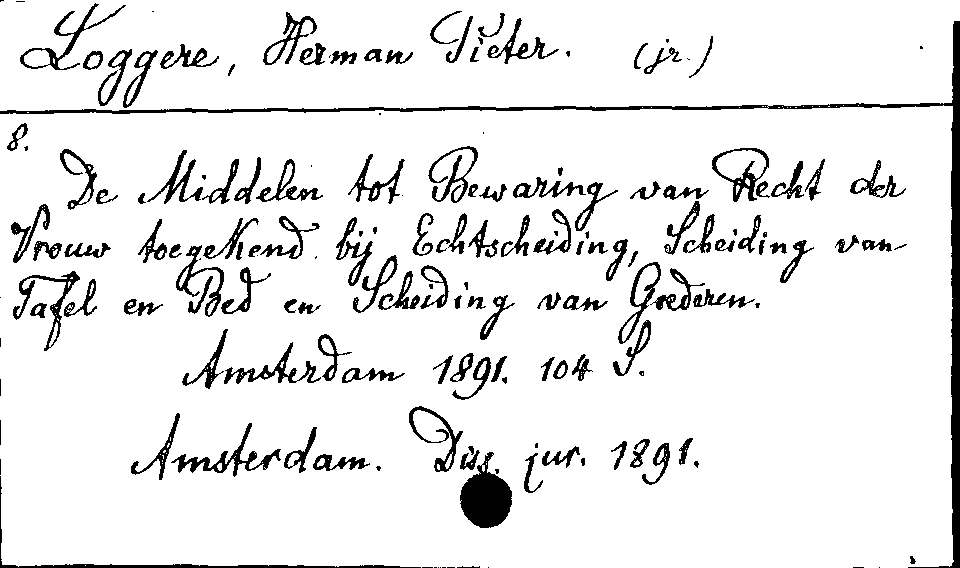 Loggere, Herman Pieter. (jr.)
8.
De Middelen tot Bewaring van Recht der
Vrouw toegekend bij Echtscheiding, Scheiding van
Tafel en Bed en Scheiding van Goederen.
Amsterdam 1891. 104 S.
Amsterdam. Diss. jur. 1891.